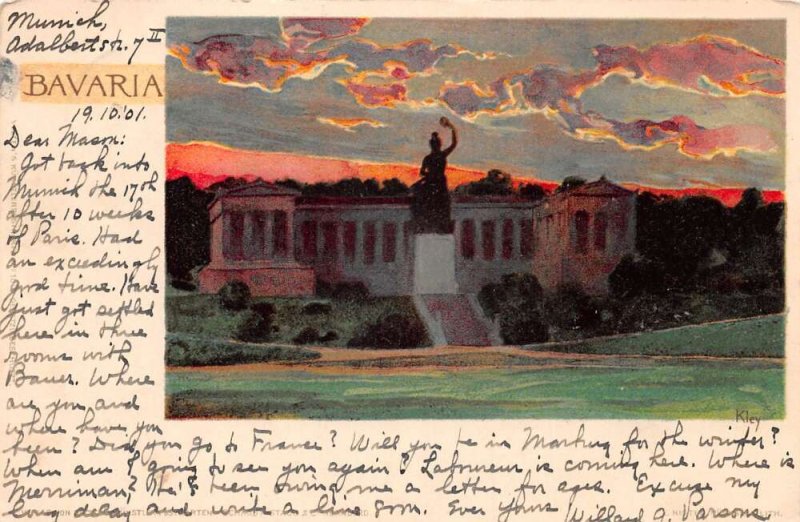 Munich,
Adalbertstr. 7 II
BAVARIA
19.10.'01.
Dear Mason:
Got back into
Munich the 17th
after 10 weeks
of Paris. Had
an exceedingly
good time. Have
just got settled
here in three
rooms with
Bauer. Where
are you and
where have you
been? Did you go to France? Will you be in Marburg for the winter?
When am I going to see you again? Laboureur is coming here. Where is
Merriman? He's been owing me a letter for ages. Excuse my
long delay and write a line soon. Ever yours
Willard G. Parsons
Kley